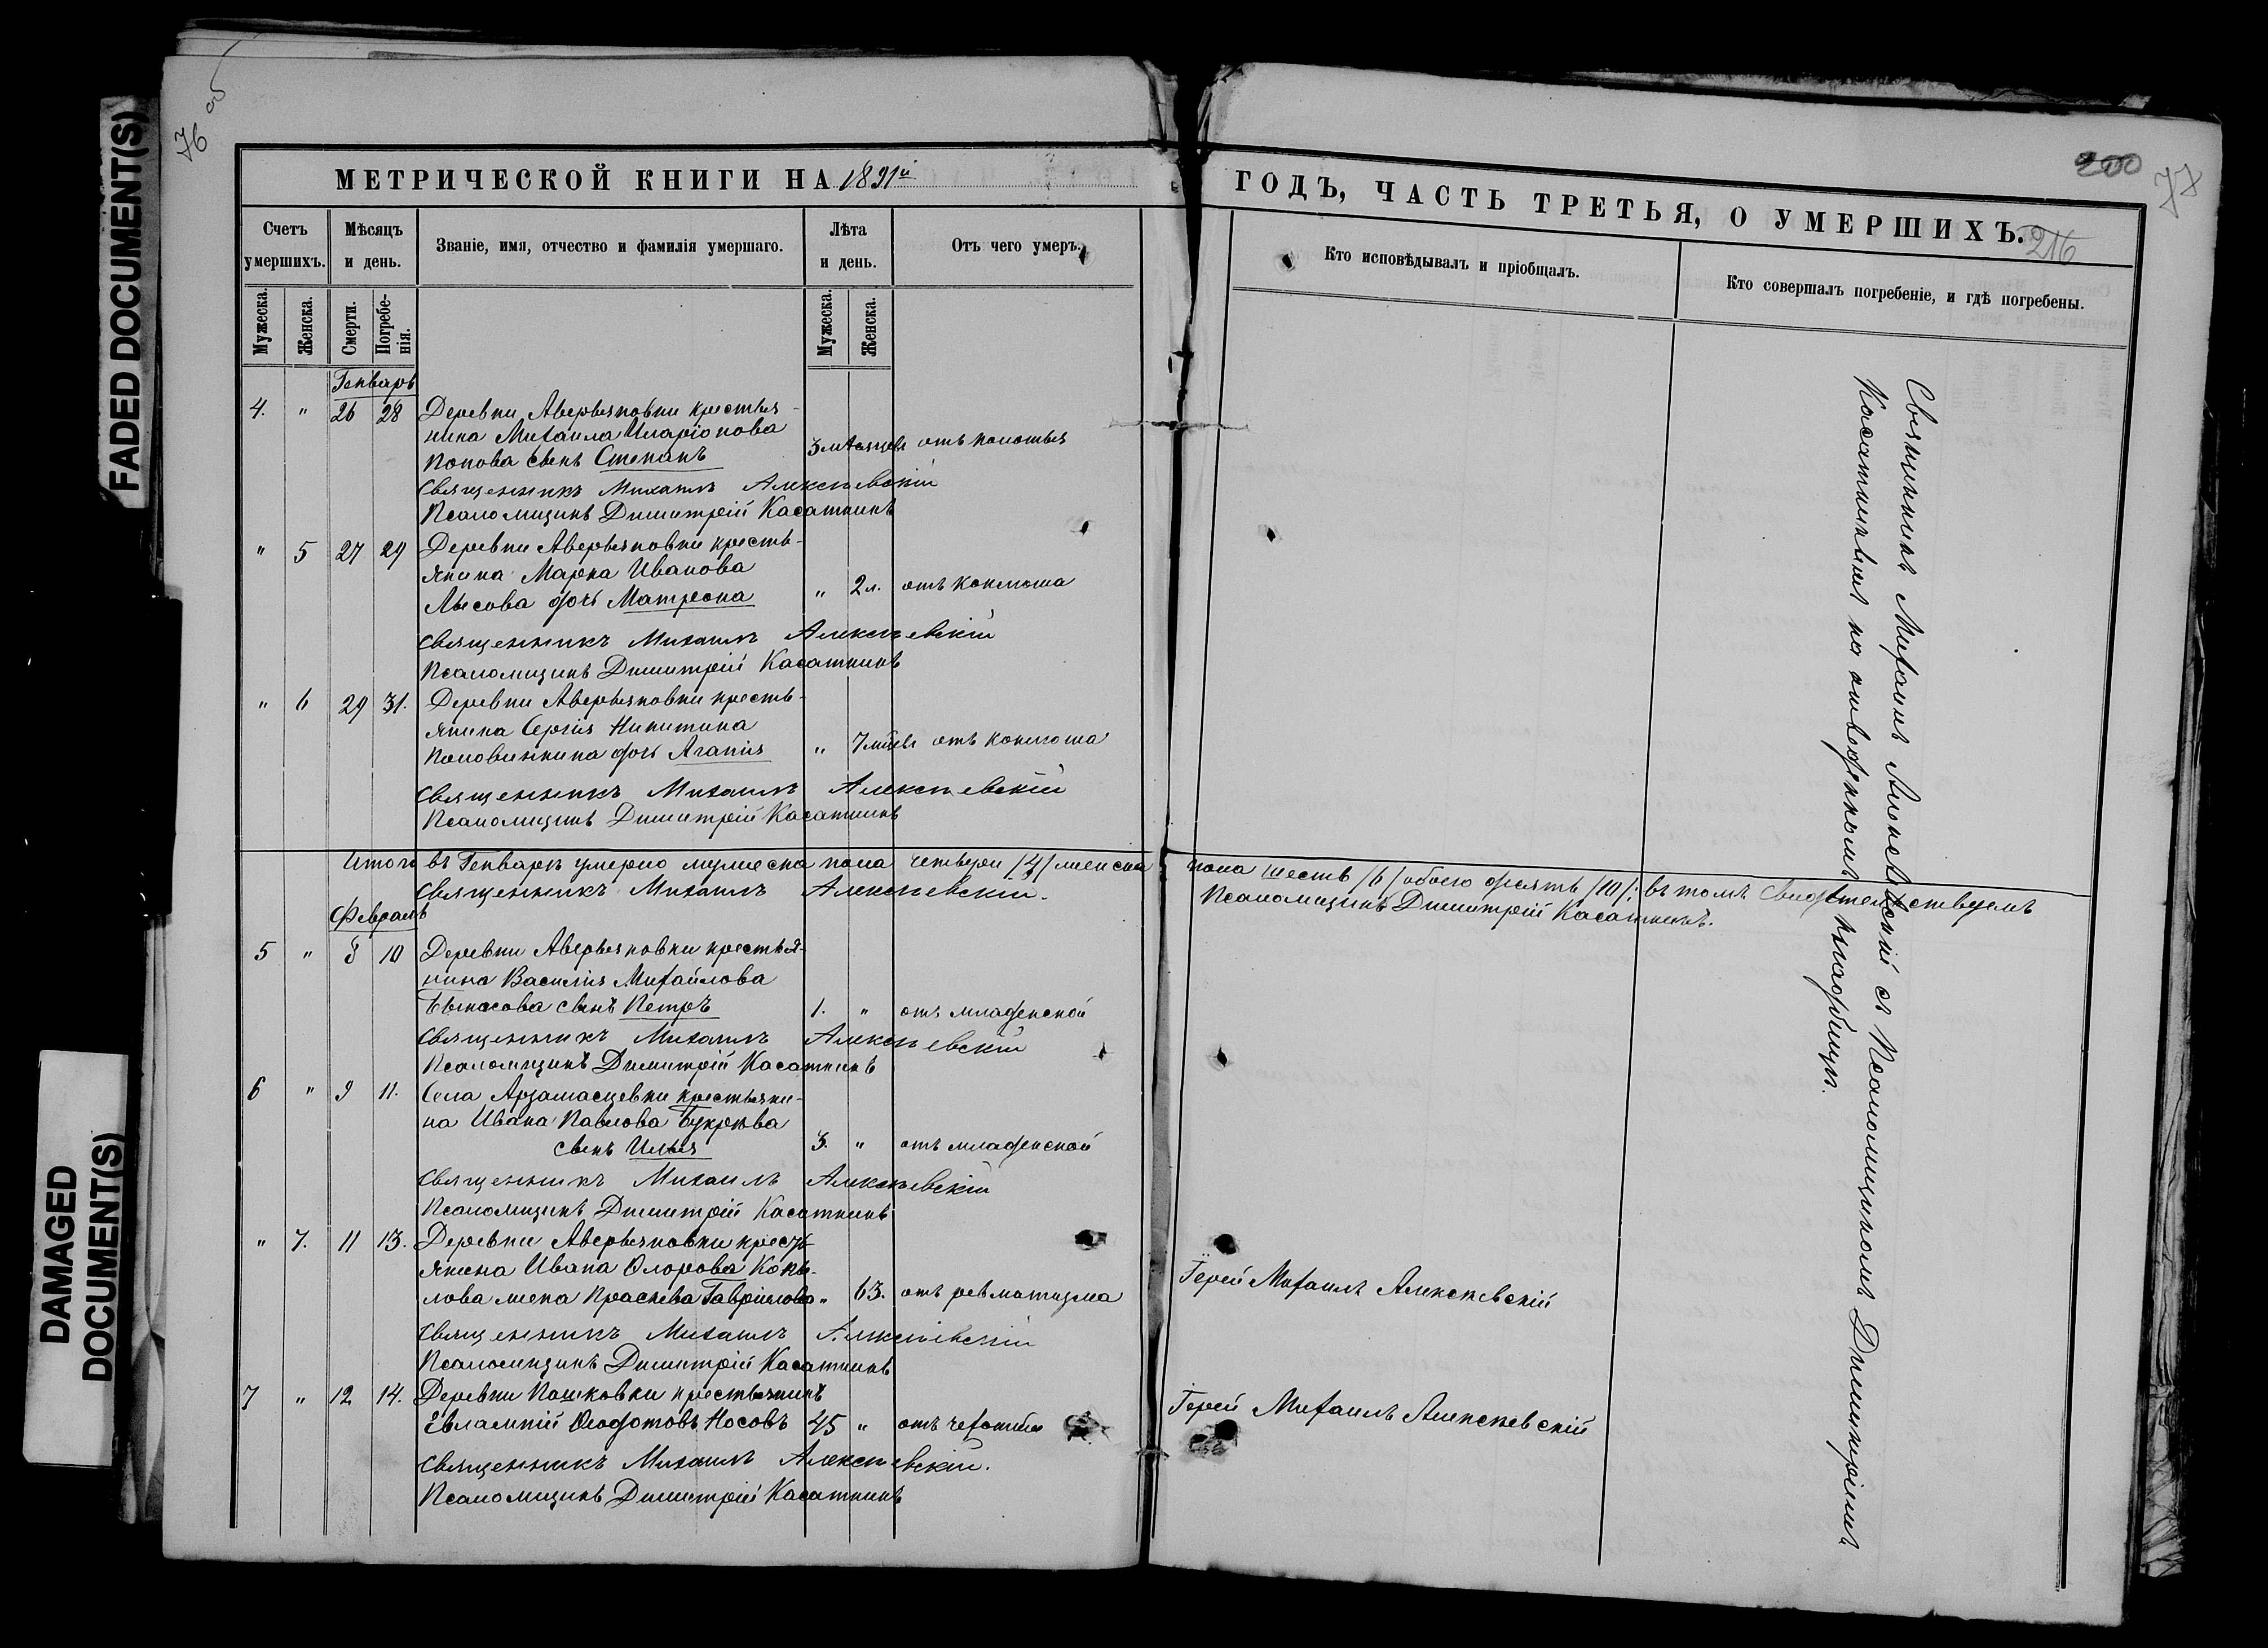 FADED DOCUMENT(S)
DAMAGED
DOCUMENT(S)
76 об
200
77
216
МЕТРИЧЕСКОЙ КНИГИ НА 1891й
ГОДЪ, ЧАСТЬ ТРЕТЬЯ, О УМЕРШИХЪ.
Счетъ умершихъ.
Мѣсяцъ и день.
Званіе, имя, отчество и фамилія умершаго.
Лѣта и день.
Отъ чего умеръ.
Кто исповѣдывалъ и пріобщалъ.
Кто совершалъ погребеніе, и гдѣ погребены.
Мужеска.
Женска.
Смерти.
Погребе-
нія.
Мужеска.
Женска.
Генварь
4. " 26 28 Деревни Аверьяновки крестья-
нина Михаила Иларіонова
Попова сынъ Степанъ 3 мѣсяцевъ отъ колотья
Священникъ Михаилъ Алексѣевскій
Псаломщикъ Димитрій Касаткинъ
" 5 27 29 Деревни Аверьяновки кресть-
янина Марка Иванова
Лысова дочь Матрона " 2 л. отъ коклюша
Священникъ Михаилъ Алексѣевскій
Псаломщикъ Димитрій Касаткинъ
" 6 29 31. Деревни Аверьяновки кресть-
янина Сергія Никитина
Половинкина дочь Агапія " 7 мцевъ отъ коклюша
Священникъ Михаилъ Алексѣевскій
Псаломщикъ Димитрій Касаткинъ
Итого въ Генварѣ умерло мужеска пола четверо /4/ женска пола шесть /6/ обоего десять /10/: въ томъ свидѣтельствуемъ
Священникъ Михаилъ Алексѣевскій. Псаломщикъ Димитрій Касаткинъ.
Февраль
5 " 8 10 Деревни Аверьяновки крестья-
нина Василія Михайлова
сынъ Петръ 1. " отъ младенской
Священникъ Михаилъ Алексѣевскій
Псаломщикъ Димитрій Касаткинъ
6 " 9 11. Села Арзамасцевки крестьяни-
на Ивана Павлова
сынъ Илья 3. " отъ младенской
Священникъ Михаилъ Алексѣевскій
Псаломщикъ Димитрій Касаткинъ
" 7. 11 13. Деревни Аверьяновки кресть-
янина Ивана Копы-
лова жена Праскева Гавріилова " 63. отъ ревматизма Іерей Михаилъ Алексѣевскій
Священникъ Михаилъ Алексѣевскій
Псаломщикъ Димитрій Касаткинъ
7 " 12 14. Деревни Пашковки крестьянинъ
Евлампій Ѳеодотовъ Носовъ 45 " отъ чехотки Іерей Михаилъ Алексѣевскій
Священникъ Михаилъ Алексѣевскій.
Псаломщикъ Димитрій Касаткинъ
Священникъ Михаилъ Алексѣевскій съ Псаломщикомъ Димитріемъ
Касаткинымъ на отведенномъ кладбищѣ.